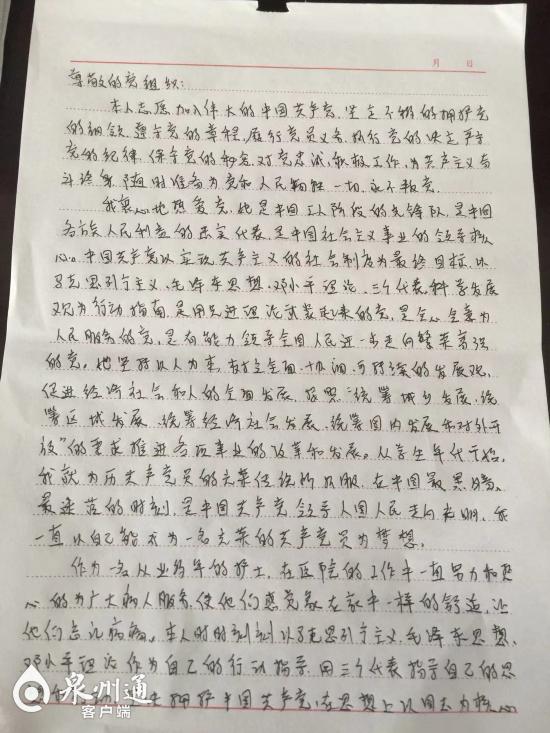 月 日
尊敬的党组织：
本人志愿加入伟大的中国共产党，坚定不移的拥护党
的纲领，遵守党的章程，履行党员义务，执行党的决定，严守
党的纪律，保守党的秘密，对党忠诚，积极工作，为共产主义奋
斗终身，随时准备为党和人民牺牲一切，永不叛党。
我衷心地热爱党，她是中国工人阶级的先锋队，是中国
各族人民利益的忠实代表，是中国社会主义事业的领导核
心。中国共产党以实现共产主义的社会制度为最终目标，以
马克思列宁主义、毛泽东思想、邓小平理论、三个代表科学发展
观为行动指南，是用先进理论武装起来的党，是全心全意为
人民服务的党，是有能力领导全国人民进一步走向繁荣富强
的党。她坚持以人为本，树立全面、协调、可持续的发展观，
促进经济社会和人的全面发展，按照“统筹城乡发展、统
筹区域发展、统筹经济社会发展、统筹国内发展和对外开
放”的要求推进各项事业的改革和发展。从学生年代开始，
我就为历共产党员的光荣伟绩所折服，在中国最黑暗、
最迷茫的时刻，是中国共产党领导人国人民走向光明，我
一直以自己能成为一名光荣的共产党员为梦想。
作为一名从业的护士，在医院的工作中一直努力和热
心的为广大病人服务，使他们感觉象在家中一样的舒适，让
他们忘记病痛。本人时时刻刻以马克思列宁主义、毛泽东思想、
邓小平理论作为自己的行动指导，用三个代表指导自己的思
拥护中国共产党，在思想上以同志为核心
泉州通
客户端